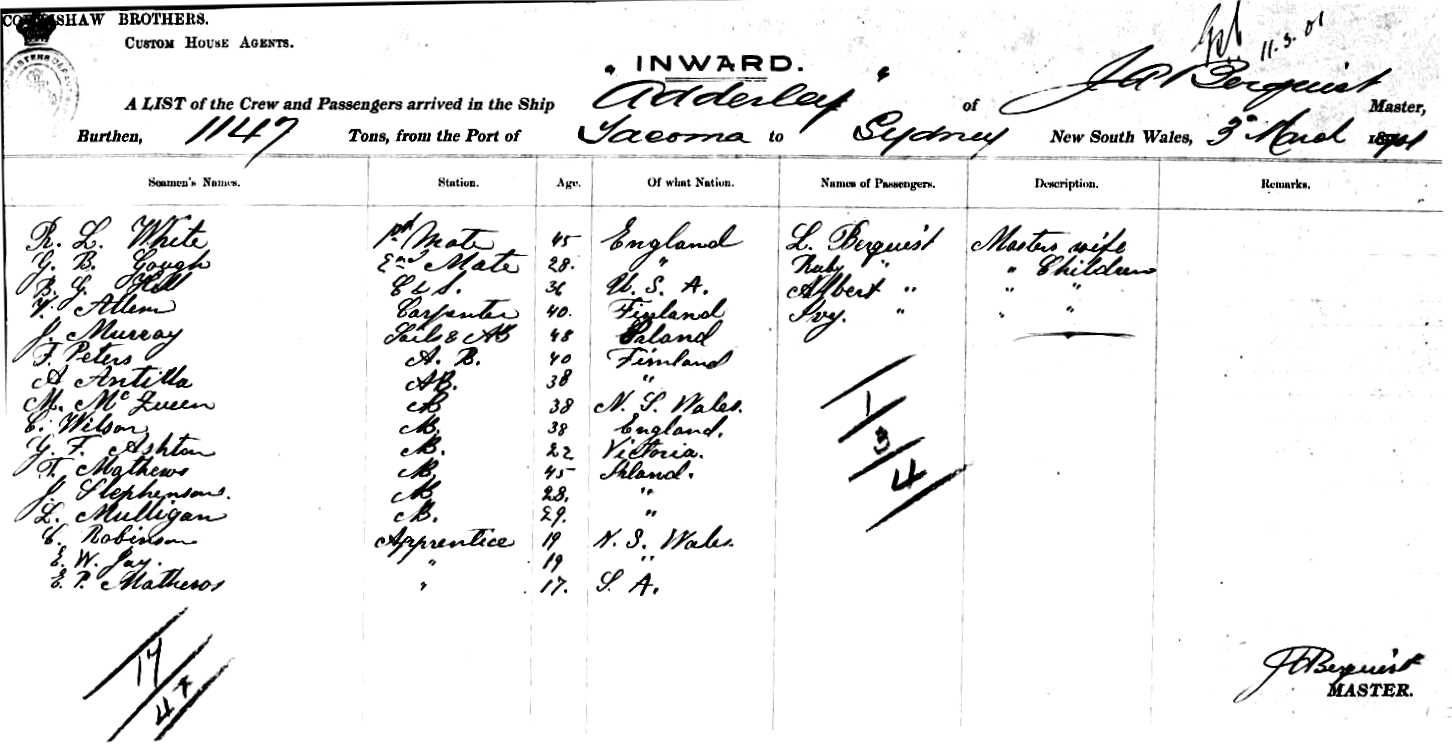 SHAW BROTHERS.
CUSTOM HOUSE AGENTS.
11.3.01
" INWARD. "
A LIST of the Crew and Passengers arrived in the Ship Adderley of J A Berquist Master,
Burthen, 1147 Tons, from the Port of Tacoma to Sydney New South Wales, 3d March
Seamen's Names. Station. Age. Of what Nation. Names of Passengers. Description. Remarks.
R. L. White 1st Mate 45 England L. Berquist Masters wife
G. B. Gough 2nd Mate 28. " Ruby " " Children
B. G. Hill C & S. 36 U. S. A. Albert " " "
Allem Carpenter 40. Finland Ivy. " " "
J. Murray Sails & AB 48
F. Peters A. B. 40 Finland
A Antilla AB. 38 "
M. McQueen AB 38 N. S. Wales. 1
C. Wilson AB. 38 England.
G. F. Ashton AB. 22 Victoria. 3
T. Mathews AB. 45 Irland. 4
J. Stephenson. AB 28. "
L. Mulligan AB. 29. "
C. Robinson Apprentice 19 N. S. Wales.
E. W. Jay. " 19 "
E. P. Mathews " 17. S. A.
17
4
J A Berquist
MASTER.